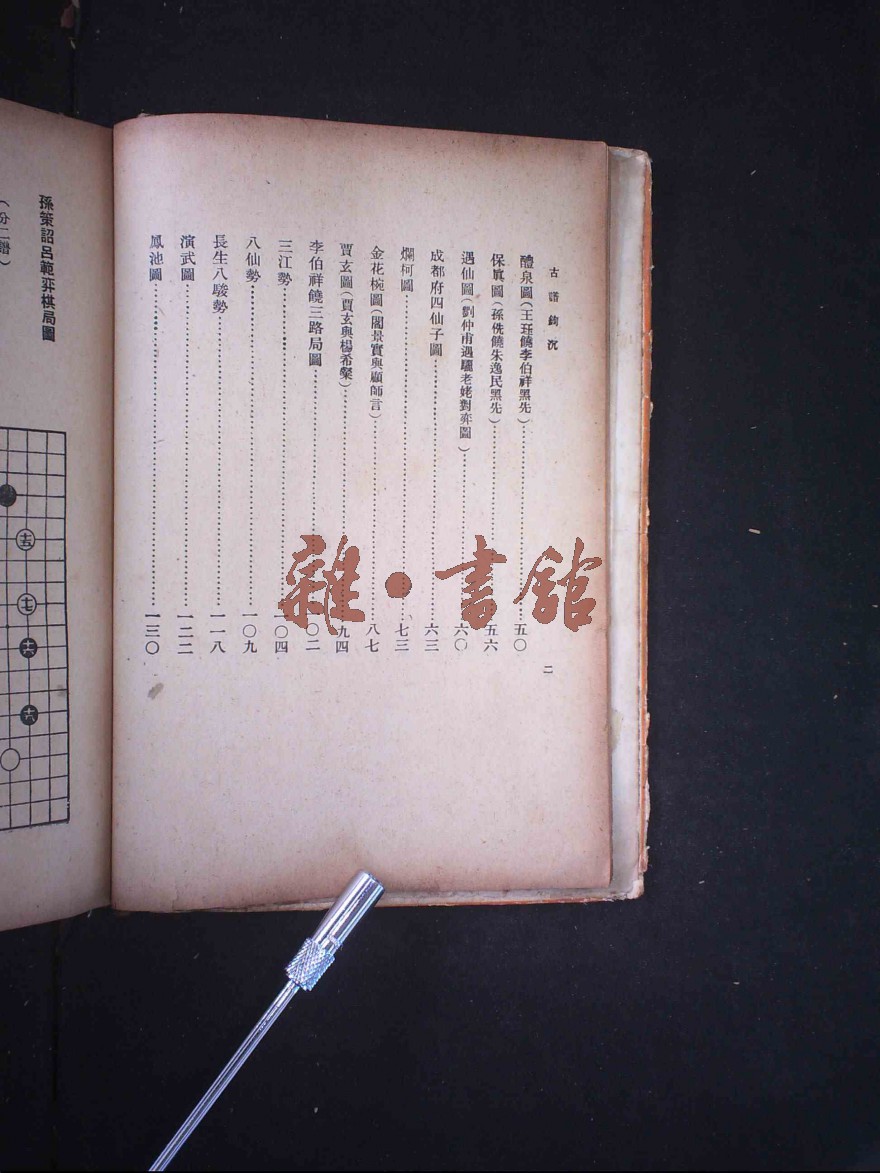 古譜鉤沉
二
醴泉圖(王珏饒李伯祥黑先)……五〇
保眞圖(孫侁饒朱逸民黑先)……五六
遇仙圖(劉仲甫遇驪老姥對弈圖)……六〇
成都府四仙子圖……六三
爛柯圖……七三
金花椀圖(閻景實與顧師言)……八七
賈玄圖(賈玄與楊希粲)……九四
李伯祥饒三路局圖……〇二
三江勢……〇四
八仙勢……一〇九
長生八駿勢……一一八
演武圖……一二二
鳳池圖……一三〇
孫策詔呂範弈棋局圖
(分二譜)
雜·書館